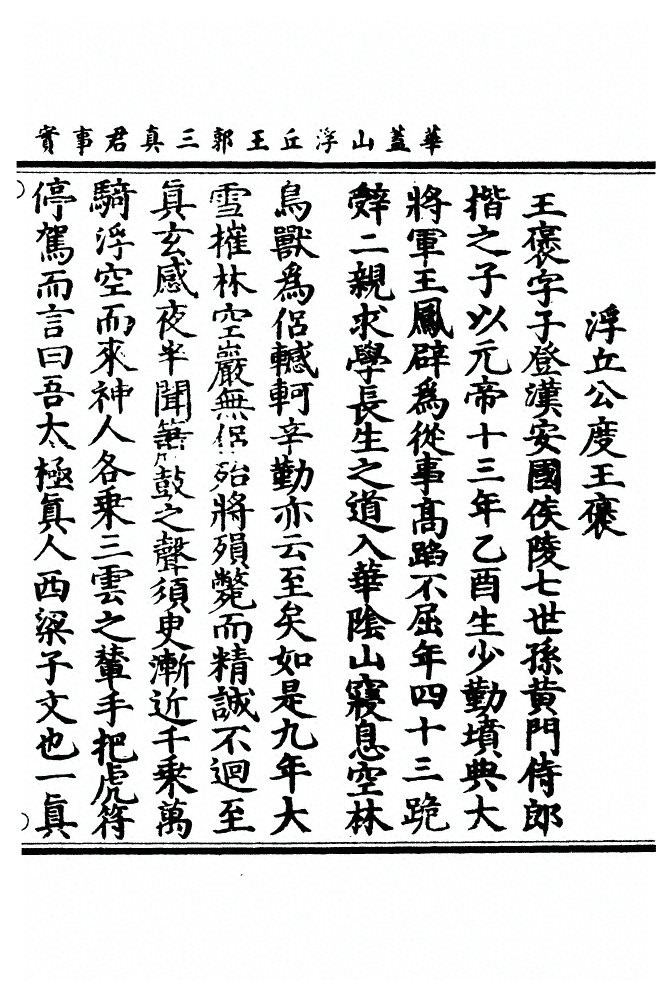 華蓋山浮丘王郭三真君事實
浮丘公度王褒
王褒字子登漢安國侯陵七世孫黃門侍郎
揩之子以元帝十三年乙酉生少勤墳典大
將軍王鳳辟為從事髙蹈不屈年四十三跪
辭二親求學長生之道入華陰山寢息空林
鳥獸為侶轗軻辛勤亦云至矣如是九年大
雪摧林空巖無侶殆將殞斃而精誠不迴至
真玄感夜半聞簫鼓之聲須臾漸近千乘萬
騎浮空而來神人各乘三雲之輦手把虎符
停駕而言曰吾太極真人西梁子文也一真